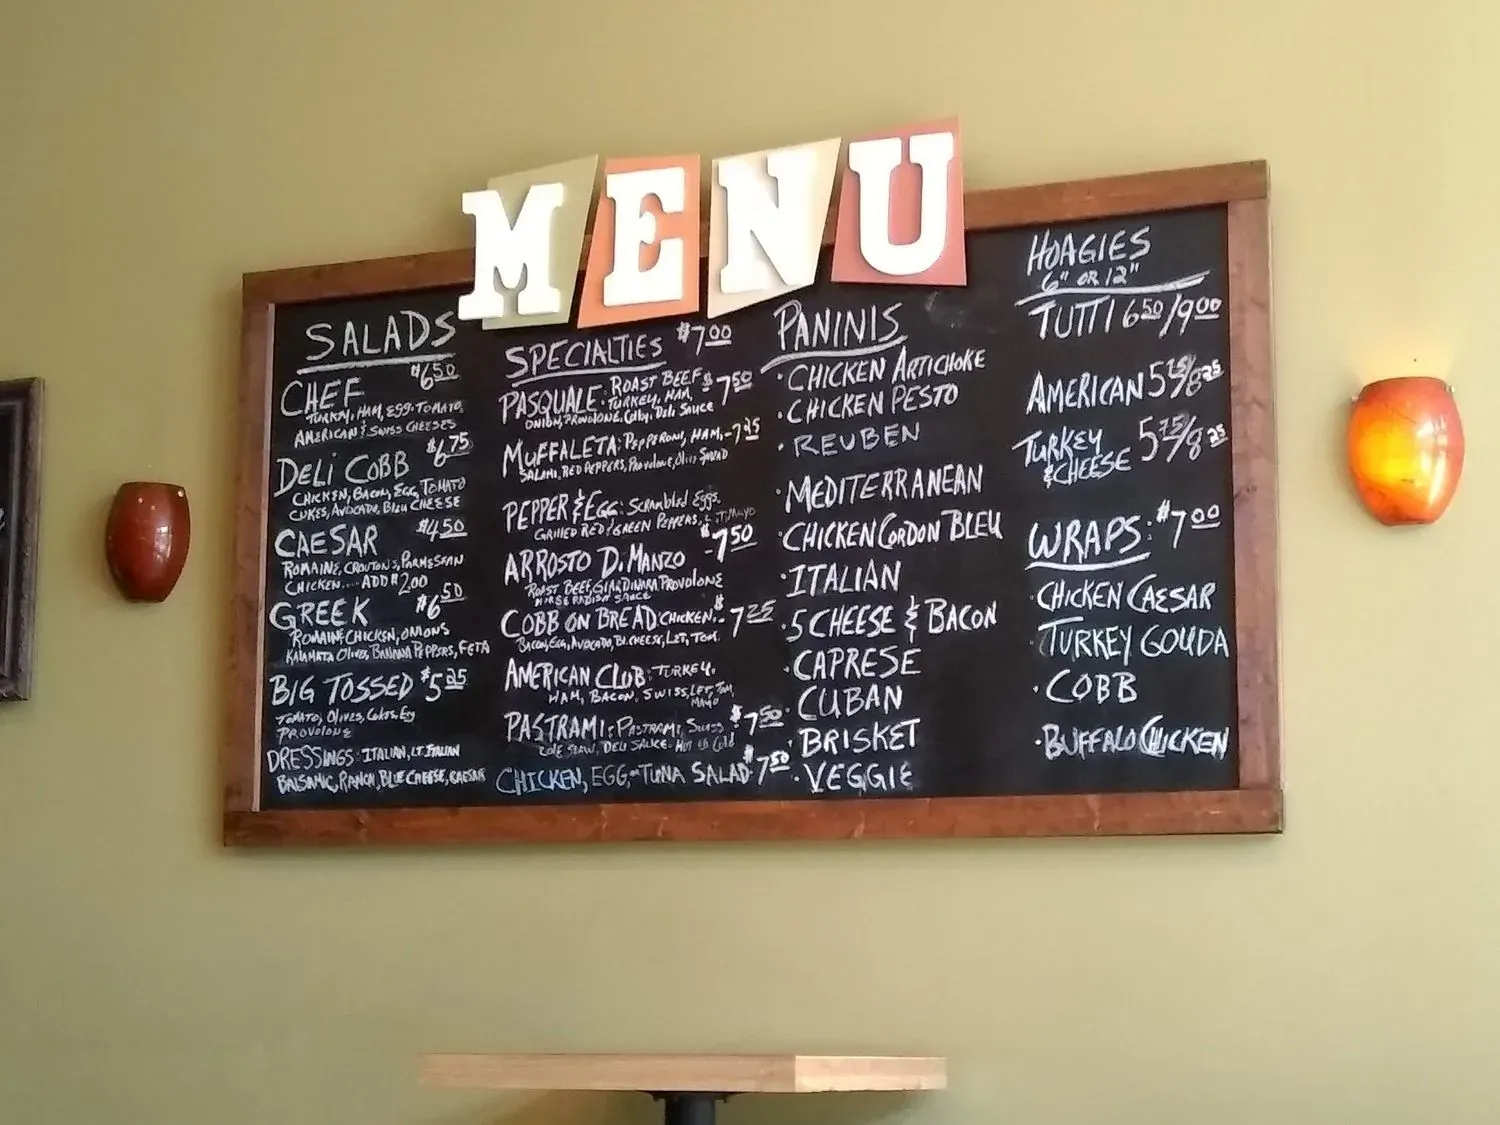 MENU
SALADS
CHEF $6.50
TURKEY, HAM, EGG, TOMATO,
AMERICAN & SWISS CHEESES
DELI COBB $6.75
CHICKEN, BACON, EGG, TOMATO
CUKES, AVOCADO, BLEU CHEESE
CAESAR $4.50
ROMAINE, CROUTONS, PARMESEAN
CHICKEN.... ADD $2.00
GREEK $6.50
ROMAINE, CHICKEN, ONIONS
KALAMATA OLIVES, BANANA PEPPERS, FETA
BIG TOSSED $5.25
TOMATO, OLIVES, CUKES, EGG
PROVOLONE
DRESSINGS: ITALIAN, LT. ITALIAN
BALSAMIC, RANCH, BLUE CHEESE, CAESAR
SPECIALTIES $7.00
PASQUALE: ROAST BEEF $7.50
TURKEY, HAM,
ONION, PROVOLONE, Colby, Deli Sauce
MUFFALETA: PEPPERONI, HAM, -7.25
SALAMI, RED PEPPERS, Provolone, Olive SALAD
PEPPER & EGG: SCRAMBLED EGGS,
GRILLED RED & GREEN PEPPERS, MAYO
ARROSTO DI MANZO -7.50
ROAST BEEF, GIARDINARA PROVOLONE
HORSERADISH SAUCE
COBB ON BREAD: CHICKEN, $7.25
BACON, EGG, AVOCADO, BL. CHEESE, LET, TOM.
AMERICAN CLUB: TURKEY,
HAM, BACON, SWISS, LET, TOM,
MAYO
PASTRAMI: PASTRAMI, SWISS $7.50
COLE SLAW, DELI SAUCE - HOT OR COLD
CHICKEN, EGG, OR TUNA SALAD $7.50
PANINIS
· CHICKEN ARTICHOKE
· CHICKEN PESTO
· REUBEN
· MEDITERRANEAN
· CHICKEN CORDON BLEU
· ITALIAN
· 5 CHEESE & BACON
· CAPRESE
· CUBAN
· BRISKET
· VEGGIE
HOAGIES
6" OR 12"
TUTTI 6.50/9.00
AMERICAN 5.75/8.25
TURKEY 5.75/8.25
& CHEESE
WRAPS: $7.00
· CHICKEN CAESAR
· TURKEY GOUDA
· COBB
· BUFFALO CHICKEN